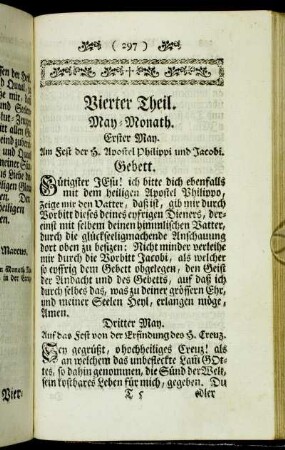 ( 297 )
Vierter Theil.
May-Monath.
Erster May.
Am Fest der H. Apostel Philippi und Jacobi.
Gebett.
Gütigster JEsu! ich bitte dich ebenfalls
mit dem heiligen Apostel Philippo,
zeige mir den Vatter, daß ist, gib mir durch
Vorbitt dieses deines eyfrigen Dieners, der-
einst mit selbem deinen himmlischen Vatter,
durch die glückseeligmachende Anschauung
dort oben zu besizen: Nicht minder verleihe
mir durch die Vorbitt Jacobi, als welcher
so eyffrig dem Gebett obgelegen, den Geist
der Andacht und des Gebetts, auf daß ich
durch selbes das, was zu deiner grössern Ehr,
und meiner Seelen Heyl, erlangen möge,
Amen.
Dritter May.
Auf das Fest von der Erfindung des H. Creuz.
Sey gegrüßt, o hochheiliges Creuz! als
an welchem das unbefleckte Lam̃ GOt-
tes, so dahin genommen, die Sünd der Welt,
sein kostbares Leben für mich, gegeben. Du
T 5 edler
Marcus.
Vier-